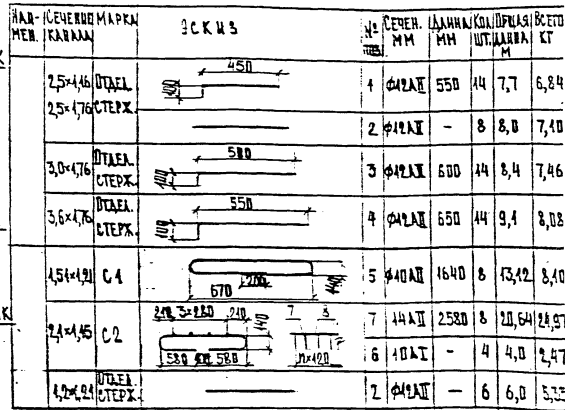 НАИ-МЕН. СЕЧЕНИЕ КАНАЛА МАРКА ЭСКИЗ № ПОЗ СЕЧЕН. ММ ДЛИНА ММ КОЛ ШТ. ОБЩАЯ ДЛИНА М ВСЕГО КГ
2,5×1,16 2,5×1,76 ОТДЕЛ. СТЕРЖ. 450 100 1 ϕ12АII 550 14 7,7 6,84
2 ϕ12АII - 8 8,0 7,10
3,0×1,76 ОТДЕЛ. СТЕРЖ. 500 100 3 ϕ12АII 600 14 8,4 7,46
3,6×1,76 ОТДЕЛ. СТЕРЖ. 550 100 4 ϕ12АII 650 14 9,1 8,08
1,51×1,21 С1 200 670 140 5 ϕ10АII 1640 8 13,12 8,10
2,1×1,15 С2 210 3×280 210 140 580 580 7 8 n×120 7 14АII 2580 8 20,64 24,97
6 10АI - 4 4,0 2,47
1,2×1,21 ОТДЕЛ. СТЕРЖ. 2 ϕ12АII - 6 6,0 5,33